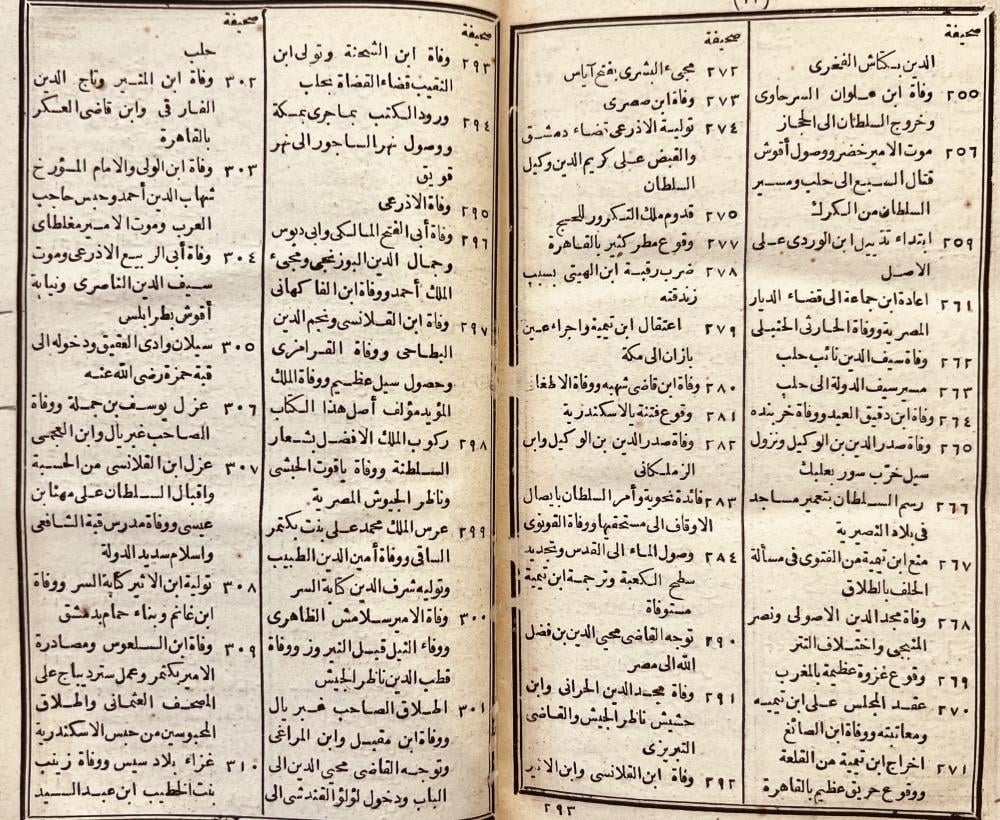 صحيفة
الدين بكتاش الفخرى
٢٥٥ وفاة ابن علوان السرحاوى
وخروج السلطان الى الحجاز
٢٥٦ موت الامير خضر ووصول أقوش
قتال السبع الى حلب ومسير
السلطان من الكرك
٢٥٩ ابتداء تذييل ابن الوردى على
الاصل
٢٦١ اعادة ابن جماعة الى قضاء الديار
المصرية ووفاة الحارثى الحنبلى
٢٦٢ وفاة سيف الدين نائب حلب
٢٦٣ مسير سيف الدولة الى حلب
٢٦٤ وفاة ابن دقيق العيد ووفاة خربنده
٢٦٥ وفاة صدر الدين بن الوكيل ونزول
سيل خرّب سور بعلبك
٢٦٦ رسم السلطان بتعمير مساجد
فى بلاد النصرية
٢٦٧ منع ابن تيمية من الفتوى فى مسألة
الحلف بالطلاق
٢٦٨ وفاة مجد الدين الاصولى ونصر
المنبجى واختلاف التتر
٢٦٩ وقوع غزوة عظيمة بالمغرب
٢٧٠ عقد المجلس على ابن تيميه
ومعاتبته ووفاة ابن الصائغ
٢٧١ اخراج ابن تيمية من القلعة
ووقوع حريق عظيم بالقاهرة
صحيفة
٢٧٢ مجىء البشرى بفتح آياس
٢٧٣ وفاة ابن صصرى
٢٧٤ تولية الاذرعى قضاء دمشق
والقبض على كريم الدين وكيل
السلطان
٢٧٥ قدوم ملك التكرور للحج
٢٧٧ وقوع مطر كثير بالقاهرة
٢٧٨ ضرب رقبة ابن الهيتى بسبب
زندقته
٢٧٩ اعتقال ابن تيمية واجراء عين
بازان الى مكة
٢٨٠ وفاة ابن قاضى شهبه ووفاة الاطغانى
٢٨١ وقوع فتنة بالاسكندرية
٢٨٢ وفاة صدر الدين بن الوكيل وابن
الزملكانى
٢٨٣ فائدة نحوية وأمر السلطان بايصال
الاوقاف الى مستحقيها ووفاة القونوى
٢٨٤ وصول الماء الى القدس وتجديد
سطح الكعبة وترجمة ابن تيمية
مستوفاة
٢٩٠ توجه القاضى محيى الدين بن فضل
الله الى مصر
٢٩١ وفاة محمد الدين الحرانى وابن
حشيش ناظر الجيش والقاضى
التبريزى
٢٩٢ وفاة ابن القلانسى وابن الاثير
٢٩٣
صحيفة
٢٩٣ وفاة ابن الشحنة وتولى ابن
النقيب قضاء القضاة بحلب
٢٩٤ ورود الكتب بماجرى بمكة
ووصول نهر الساجور الى نهر
قويق
٢٩٥ وفاة الاذرعى
٢٩٦ وفاة أبى الفتح المالكى وابى دبوس
وجمال الدين البوزنجى ومجىء
الملك أحمد ووفاة ابن الفاكهانى
٢٩٧ وفاة ابن القلانسى ونجم الدين
البطاحى ووفاة القرامزى
وحصول سيل عظيم ووفاة الملك
المؤيد مؤلف أصل هذا الكتاب
٢٩٨ ركوب الملك الافضل بشعار
السلطنة ووفاة ياقوت الحبشى
وناظر الجيوش المصرية
٢٩٩ عرس الملك محمد على بنت بكتمر
الساقى ووفاة أمين الدين الطبيب
وتوليه شرف الدين كتابة السر
٣٠٠ وفاة الامير سلامش الظاهرى
ووفاء النيل قبل النيروز ووفاة
قطب الدين ناظر الجيش
٣٠١ اطلاق الصاحب غبريال
ووفاة ابن مقبل وابن المراغى
وتوجه القاضى محيى الدين الى
الباب ودخول لؤلؤ القندشى الى
صحيفة
حلب
٣٠٢ وفاة ابن المنير وتاج الدين
الفارقى وابن قاضى العسكر
بالقاهرة
٣٠٣ وفاة ابن الولى والامام المؤرخ
شهاب الدين أحمد وحبس حاجب
العرب وموت الامير مغلطاى
٣٠٤ وفاة أبى الربيع الاذرعى وموت
سيف الدين الناصرى ونيابة
أقوش بطرابلس
٣٠٥ سيلان وادى العقيق ودخوله الى
قبة حمزة رضى الله عنه
٣٠٦ عزل يوسف بن جملة ووفاة
الصاحب غبريال وابن العجمى
٣٠٧ عزل ابن القلانسى من الحسبة
واقبال السلطان على مهنا بن
عيسى ووفاة مدرس قبة الشافعى
واسلام سديد الدولة
٣٠٨ تولية ابن الاثير كتابة السر ووفاة
ابن غانم وبناء حمام بدمشق
٣٠٩ وفاة ابن السلعوس ومصادرة
الامير بكتمر وعمل ستر ديباج على
المصحف العثمانى واطلاق
المحبوسين من حبس الاسكندرية
٣١٠ غزاء بلاد سيس ووفاة زينب
بنت الخطيب ابن عبد السيد